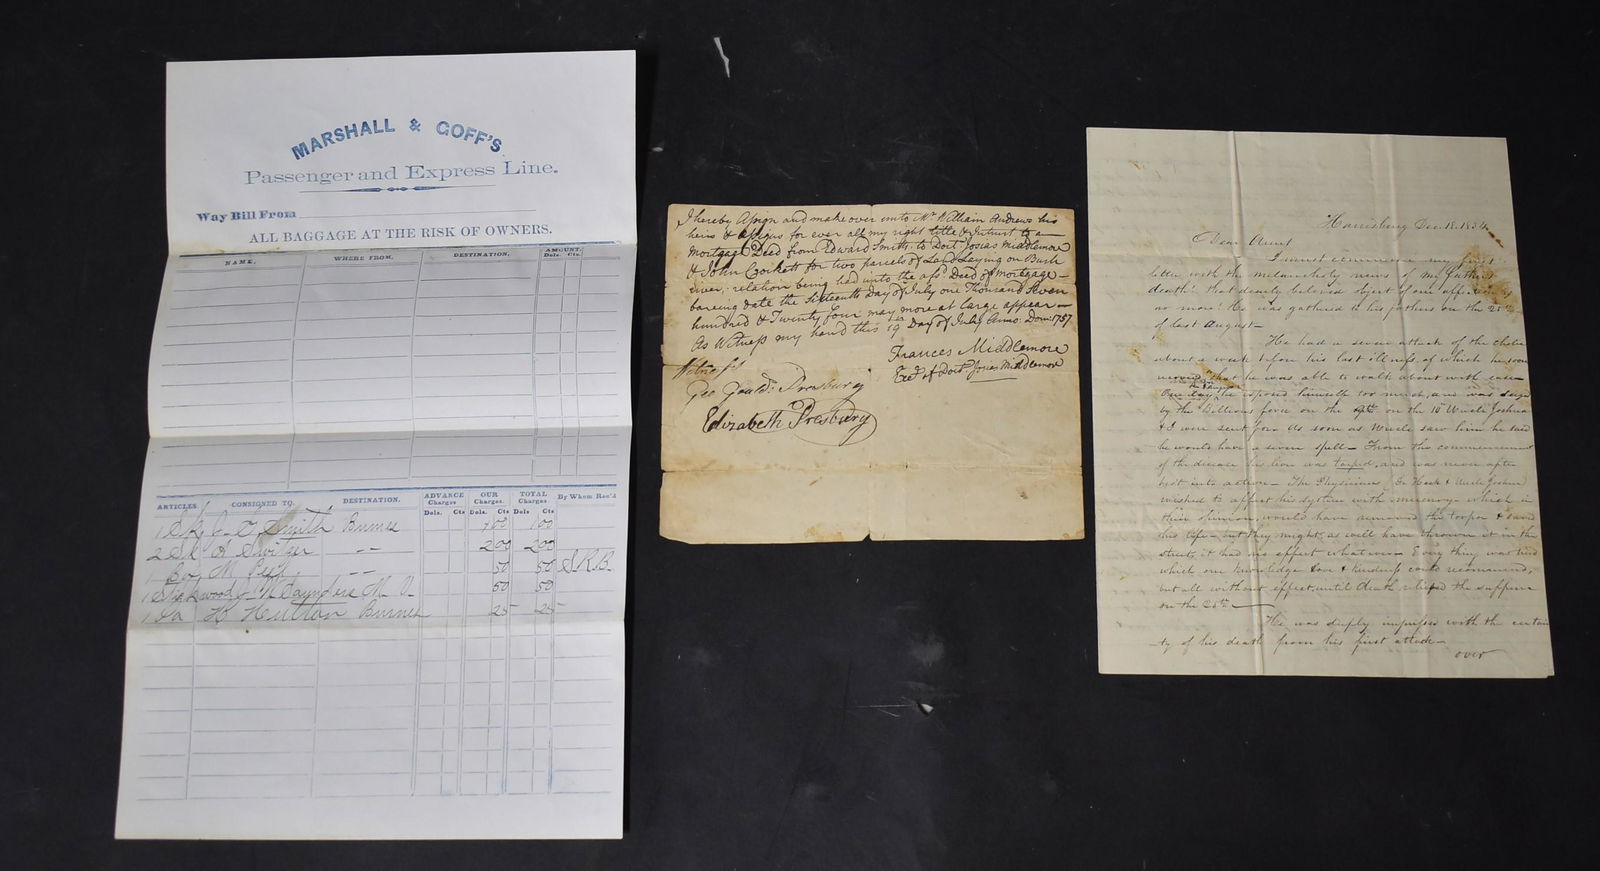 MARSHALL & GOFF'S
Passenger and Express Line.
Way Bill From
ALL BAGGAGE AT THE RISK OF OWNERS.
NAME. WHERE FROM. DESTINATION. AMOUNT.
Dols. Cts.
ARTICLES. CONSIGNED TO. DESTINATION. ADVANCE Charges OUR Charges. TOTAL Charges By Whom Rec'd
Dols. Cts Dols. Cts Dols Cts
1 Sk Smith Burnes 100 100
2 Sk 200 200
1 Box M 50 50 S.R.B.
1 Saunders M. V. 50 50
1 Do H Hutton Burnes 25 25
I hereby Assign and make over unto Mr. William Andrews his
heirs & Assigns for ever all my right title & Intrust to a
Mortgage Deed from Edward Smith to Doct. Josias Middlemore
& John Crockets for two parcels of Land Laying on Bush
river, relation being had unto the afsd. Deed of mortgage
bareing date the Sixteenth Day of July one Thousand Seven
hundred & Twenty four may more at large appear
As Witness my hand this 19th Day of July Anno: Dom: 1757
Frances Middlemore
Exx. of Doct. Josias Middlemore
Witness
Geo Gould. Presbury
Elizabeth Presbury
Harrisburg Dec. 18. 1834
Dear Aunt
I must commence my first
letter with the melancholy news of my father's
death! that dearly beloved object of our affection is
no more! He was gathered to his fathers on the 25th
of last August—
He had a severe attack of the cholic
about a week before his last illness, of which he soon
that he was able to walk about with ease
One day he exposed himself too much, and was
by the Billious fever on the on the 10 Uncle Joshua
& I were sent for. As soon as Uncle saw him he said
he would have a severe spell— From the commencement
of the disease his liver was torpid, and was never after
into action— The Physicians, & Uncle Joshua
wished to affect his system with mercury— which in
their opinion, would have removed the torpor & saved
his life— but they might as well have thrown it in the
streets, it had no effect whatever— Every thing was tried
which our knowledge love & kindness could recommend,
but all without effect, until Death relieved the sufferer
on the 25th—
He was deeply impressed with the certain
ty of his death from his first attack—
over